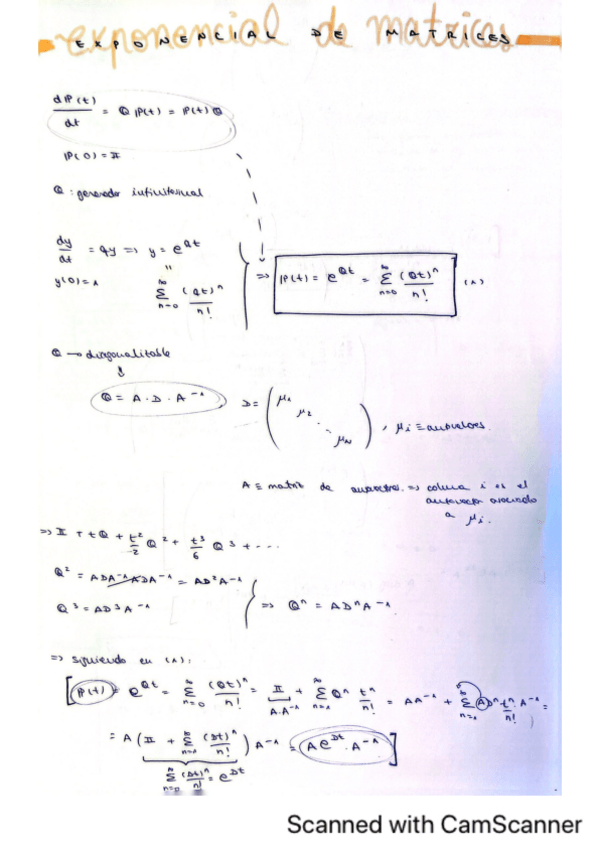 exponencial de matrices
EXPONENCIAL DE MATRICES
dP(t)/dt = Q P(t) = P(t) Q
P(0) = II
Q : generador infinitesimal
dy/dt = qy => y = e^{qt}
y(0)=1
" ∑_{n=0}^{∞} (qt)^n/n!
=> P(t) = e^{Qt} = ∑_{n=0}^{∞} (Qt)^n/n! (1)
Q → diagonalizable
⇓
Q = A · D · A^{-1}
D = (μ1 μ2 ⋱ μN), μi ≡ autovalores.
A ≡ matriz de => columna i es el
autovector asociado
a μi.
=> II + tQ + t²/2 Q² + t³/6 Q³ + ...
Q² = ADA^{-1}ADA^{-1} = AD²A^{-1}
Q³ = AD³A^{-1}
=> Q^n = AD^nA^{-1}
=> siguiendo en (1):
[P(t) = e^{Qt} = ∑_{n=0}^{∞} (Qt)^n/n! = II + ∑_{n=1}^{∞} Q^n t^n/n! = AA^{-1} + ∑_{n=1}^{∞} AD^n t^n/n! A^{-1} =
A·A^{-1}
= A (II + ∑_{n=1}^{∞} (Dt)^n/n!) A^{-1} = A e^{Dt} · A^{-1}]
∑_{n=0}^{∞} (Dt)^n/n! = e^{Dt}
Scanned with CamScanner